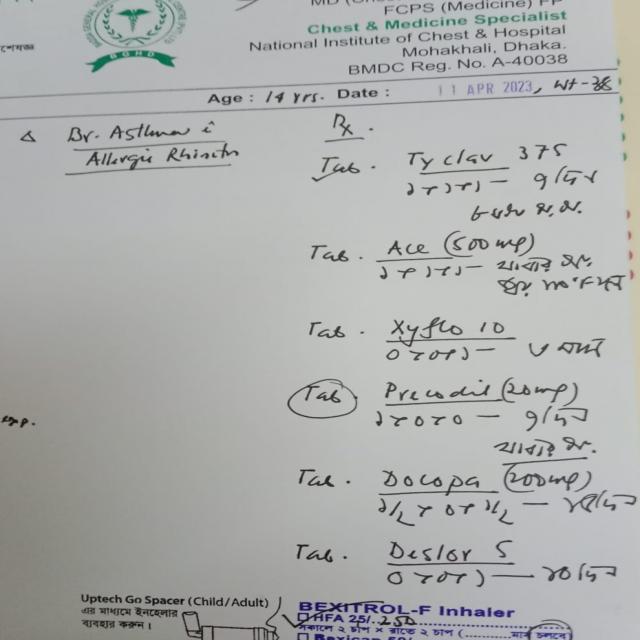 FCPS (Medicine) FP
Chest & Medicine Specialist
National Institute of Chest & Hospital
Mohakhali, Dhaka.
BMDC Reg. No. A-40038
Age : 14 yrs. Date : 11 APR 2023, Wt - 38
Δ Br. Asthma c̄
Allergic Rhinitis
Rx.
Tab. Tyclav 375
১+১+১ — ৭ দিন
Tab. Ace (500mg)
১+১+১ —
Tab. Xyflo 10
০+০+১ — ৩ মাস
Tab. Precodil (20mg)
১+০+০ — ৭ দিন
Tab. Docopa (200mg)
১/২+০+১/২ —
Tab. Deslor 5
০+০+১ —
Uptech Go Spacer (Child/Adult)
এর মাধ্যমে ইনহেলার
ব্যবহার করুন।
BEXITROL-F Inhaler
HFA 25/ 250
সকালে ২ চাপ × রাতে ২ চাপ (............ মাস চলবে)